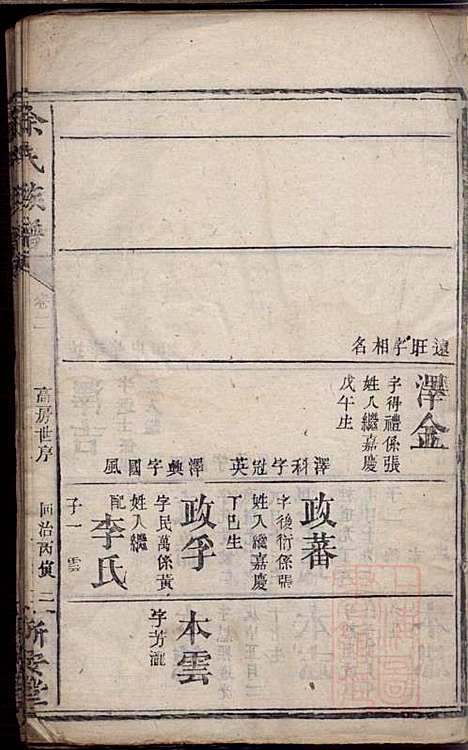 遠旺字相名
澤金
字得禮係張
姓入繼嘉慶
戊午生
澤科字冠英
澤興字國風
政蕃
字後衍係張
姓入繼嘉慶
丁巳生
政孚
字民萬係黃
姓入繼
配李氏
子一 雲
本雲
字芳瀧
徐氏族譜
卷二
高房世序
同治丙寅
二